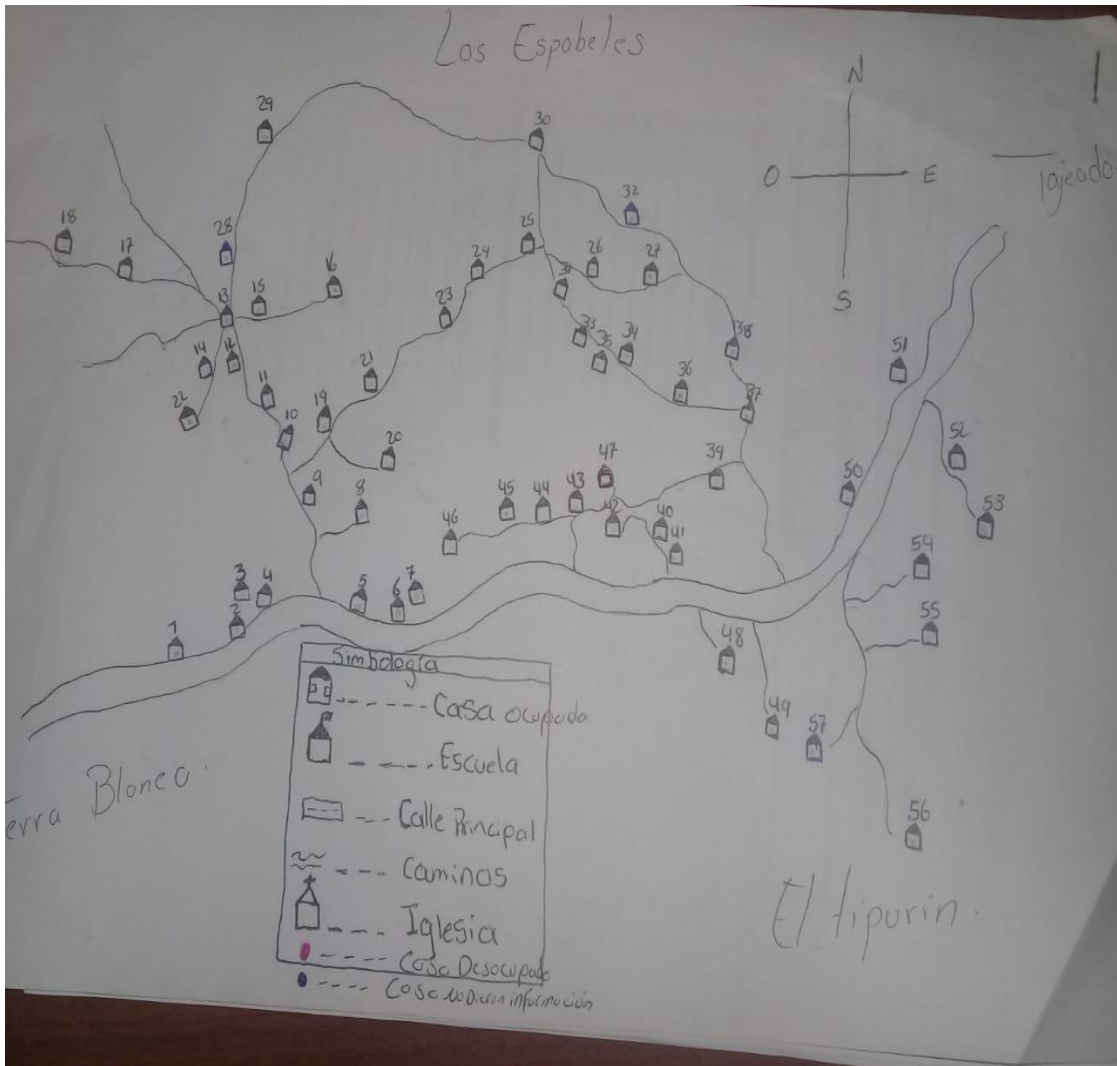 Los Espabeles
1
N
O
E
S
Tajeado
29
30
32
18
17
28
25
26
27
24
16
15
13
23
31
33
35
34
38
51
14
12
22
11
21
36
37
10
19
20
52
9
8
47
39
50
53
46
45
44
43
42
40
41
54
3
4
5
6
7
55
1
2
48
49
57
56
Simbología
Casa ocupada
Escuela
Calle Principal
Caminos
Iglesia
Casa Desocupada
Casa No Dieron información
erra Blanca.
El tipurin.